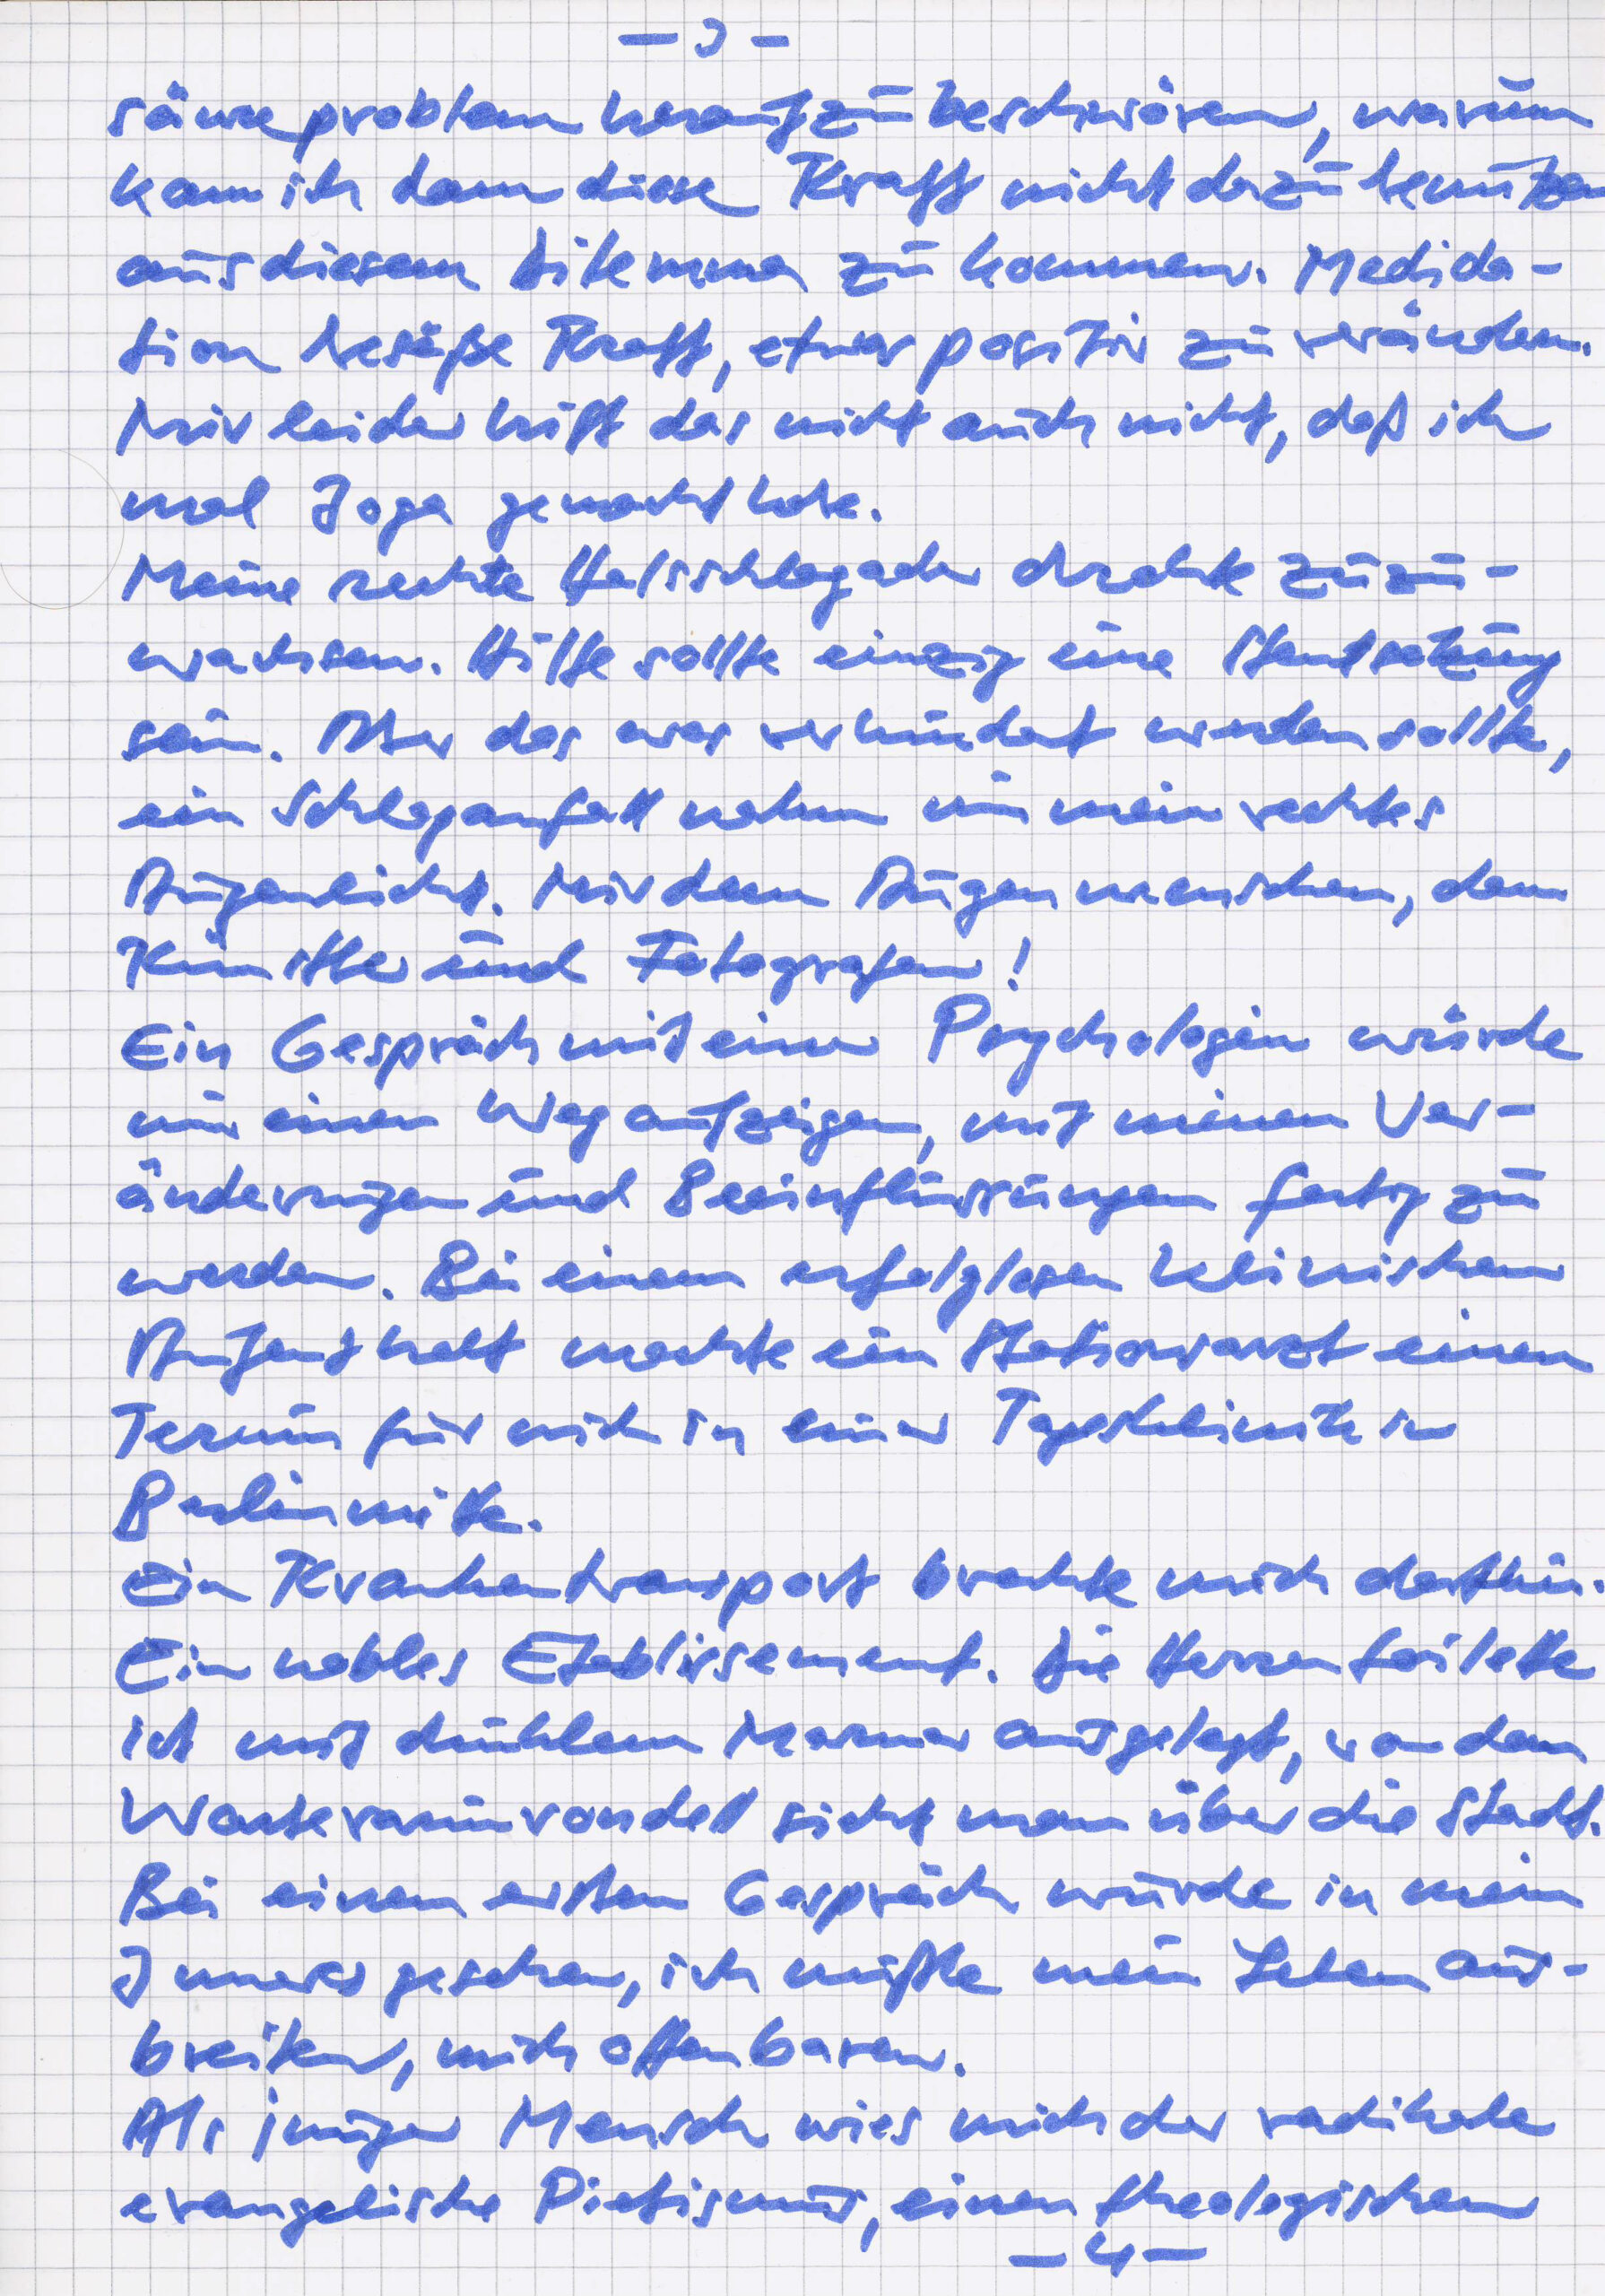 - 3 -
säureproblem heraufzubeschwören, warum
kann ich dann diese Kraft nicht dazu benutzen
aus diesem Dilemma zu kommen. Medida-
tion besäße Kraft, etwas positiv zu verändern.
Mir leider hilft das nicht auch nicht, daß ich
mal Joga gemacht habe.
Meine rechte Halsschlagader drohte zuzu-
wachsen. Hilfe sollte einzig eine Stentsetzung
sein. Aber das was verhindert werden sollte,
ein Schlaganfall nahm mir mein rechtes
Augenlicht. Mir dem Augenmenschen, dem
Künstler und Fotografen!
Ein Gespräch mit einer Psychologin würde
mir einen Weg aufzeigen, mit meinen Ver-
änderungen und Beeinflussungen fertig zu
werden. Bei einem erfolglosen klinischen
Aufenthalt machte ein Stationsarzt einen
Termin für mich in einer Tagesklinik in
Berlin mitte.
Ein Krankentransport brachte mich dorthin.
Ein nobles Etablissement. Die Herrentoilette
ist mit dunklem Marmor ausgelegt, von dem
Warteraumrondell sieht man über die Stadt.
Bei einem ersten Gespräch wurde in mein
Inneres gesehen, ich mußte mein Leben aus-
breiten, mich offenbaren.
Als junger Mensch wies mich der radikale
evangelische Pietismus, einen theologischen
- 4 -